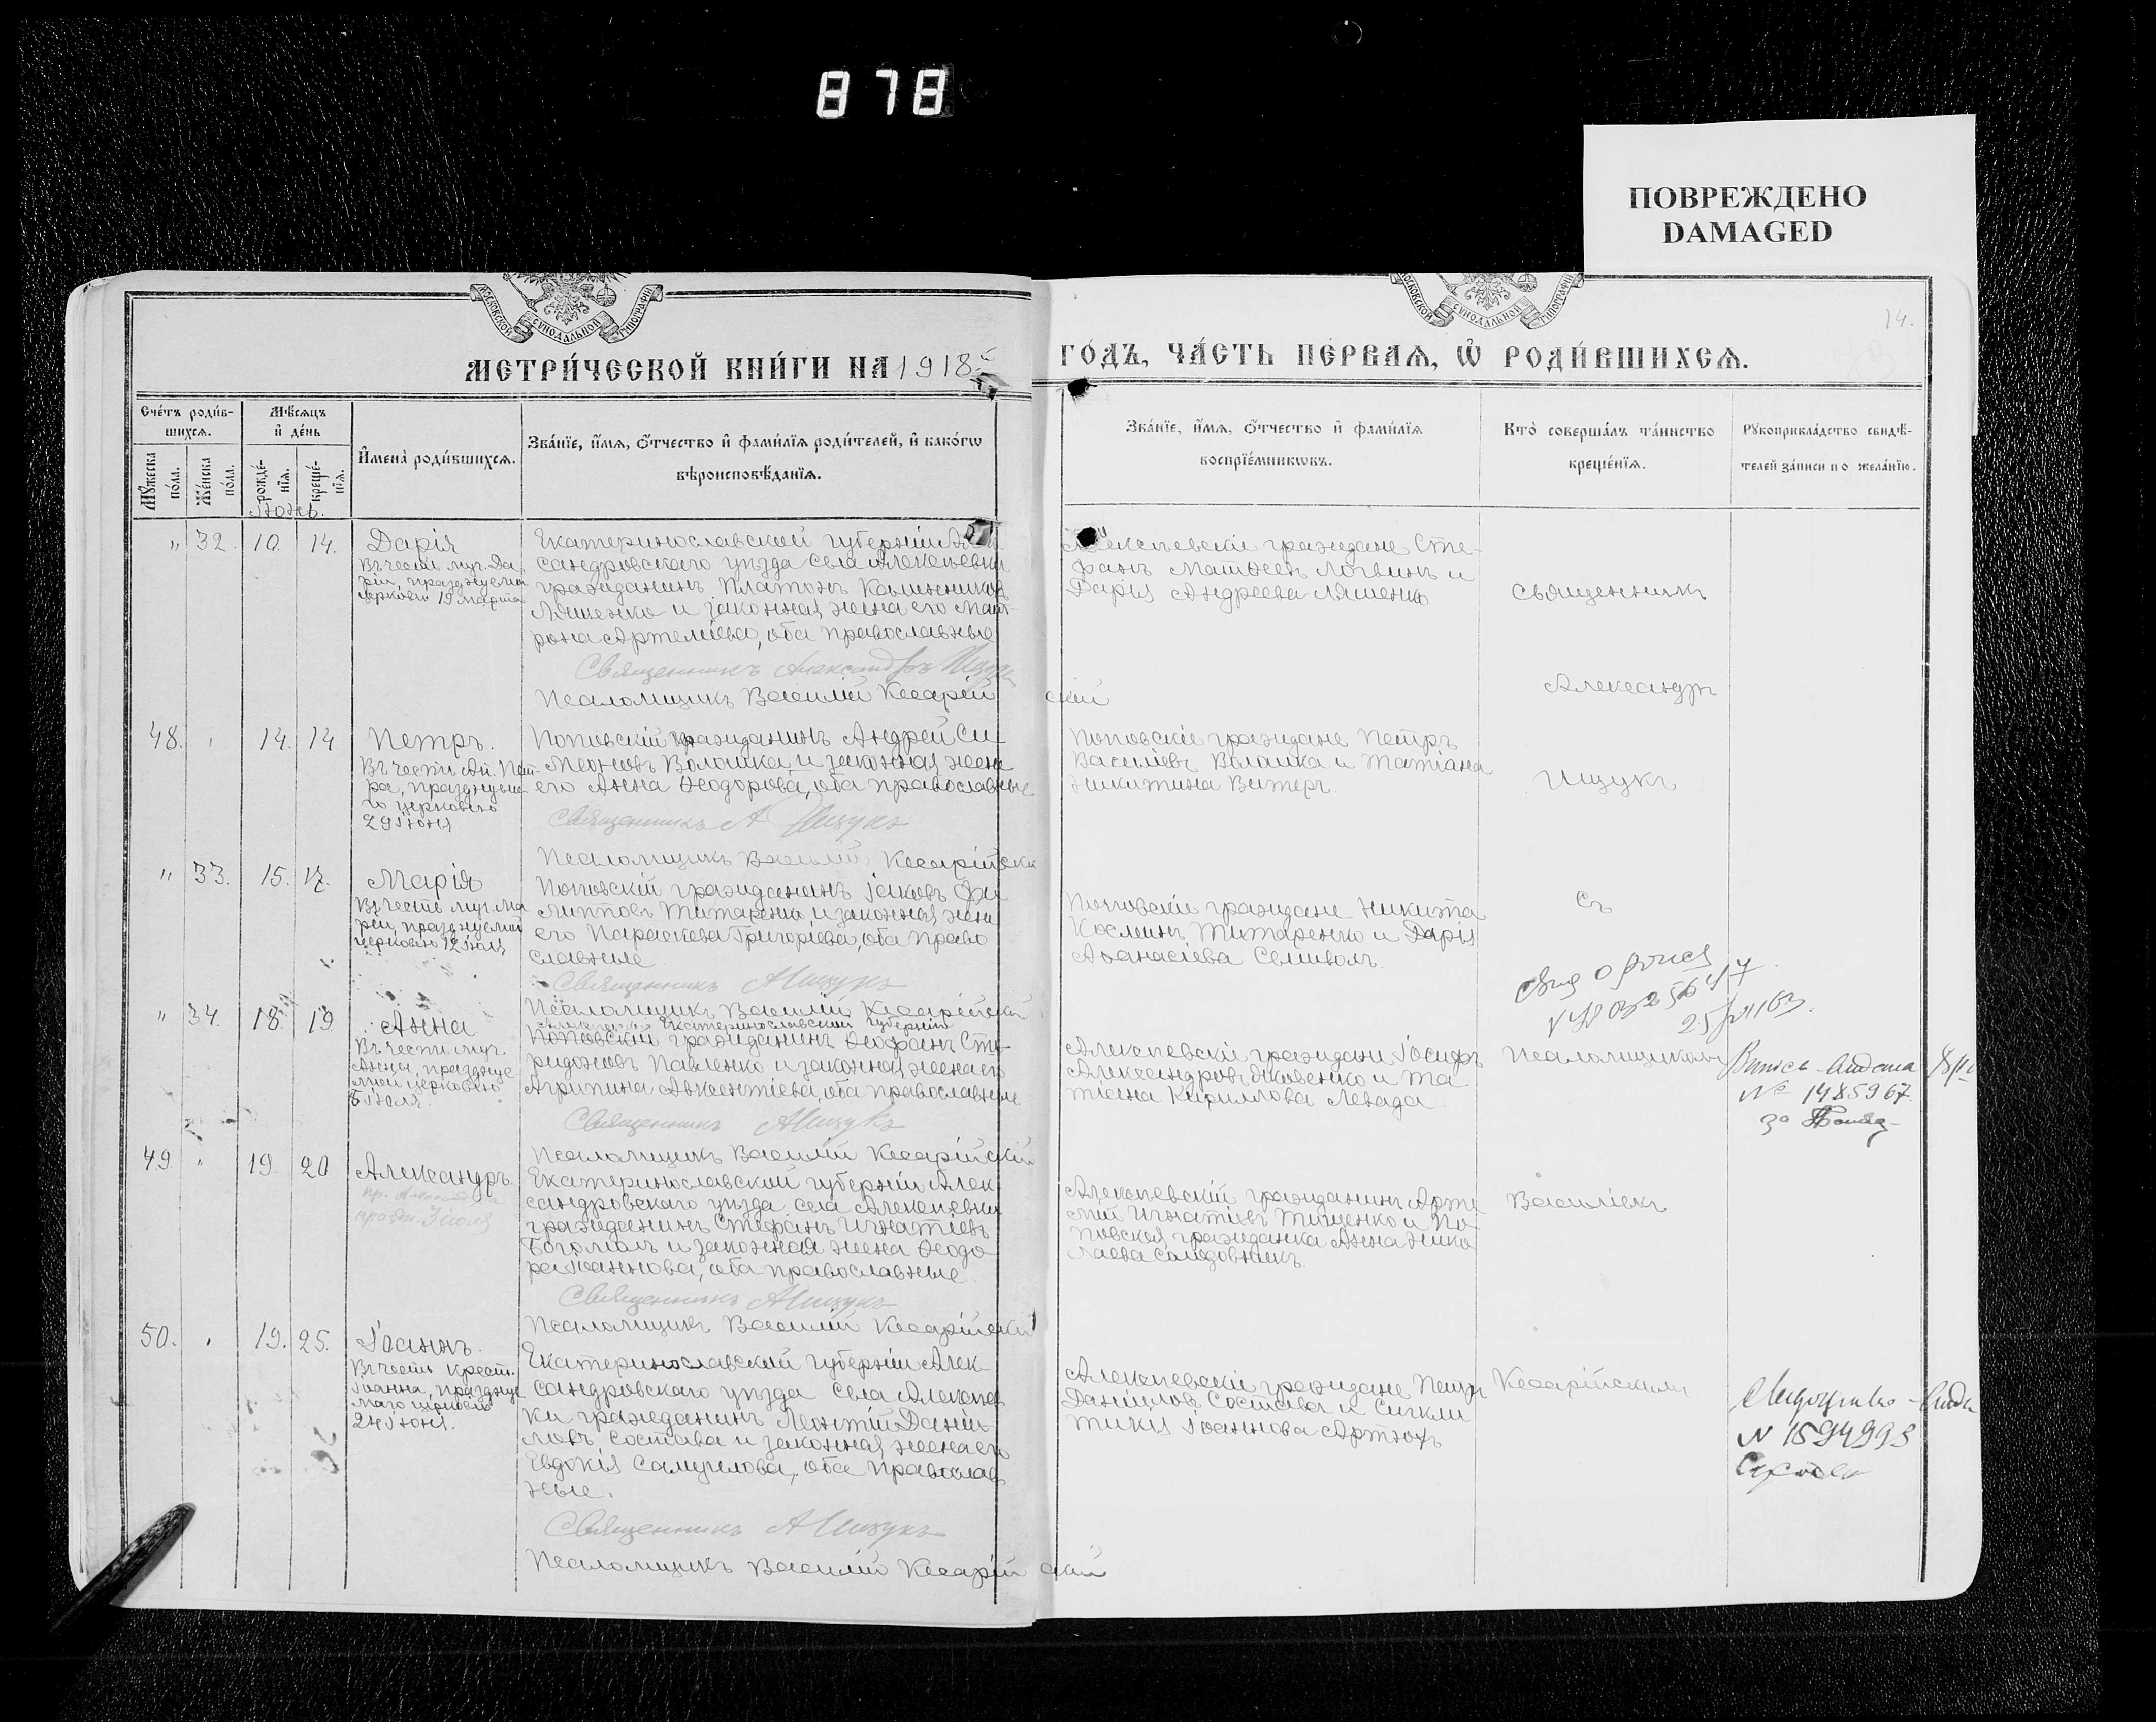 878
ПОВРЕЖДЕНО
DAMAGED
МОСКОВСКОЙ СѴНОДАЛЬНОЙ ТИПОГРАФІИ
МОСКОВСКОЙ СѴНОДАЛЬНОЙ ТИПОГРАФІИ
14.
МЕТРИ́ЧЕСКОЙ КНИ́ГИ НА 1918й
ГО́ДЪ, ЧА́СТЬ ПЕ́РВАѦ, Ѡ҆ РОДИ́ВШИХСѦ.
Сче́тъ роди́в-
шихсѧ.
Мѣ́сѧцъ
и҆ де́нь
И҆мена̀ роди́вшихсѧ.
Зва́нїе, и҆́мѧ, ѻ҆́тчество и҆ фами́лїѧ роди́телей, и҆ како́гѡ
вѣроисповѣ́данїѧ.
Мꙋ́жеска
по́ла.
Же́нска
по́ла.
рожде́-
нїѧ.
креще́-
нїѧ.
Іюнь.
Зва́нїе, и҆́мѧ, ѻ҆́тчество и҆ фами́лїѧ
воспрїе́мникѡвъ.
Кто̀ соверша́лъ та́инство
креще́нїѧ.
Рꙋкоприкла́дство свидѣ́-
телей за́писи по жела́нїю.
" 32. 10. 14. Дарія
Въ честь муч. Да-
ріи, празднуемой
церковію 19 марта
Екатеринославской губерніи Алек-
сандровскаго уѣзда села Алексѣевки
гражданинъ Платонъ Калинниковъ
Ляшенко и законная жена его Мат-
рона Артеміева, оба православные
Священникъ Александръ Ищукъ
Псаломщикъ Василій Кесарійскій
Алексѣевскіе граждане Сте-
фанъ Матѳеевъ Логвинъ и
Дарія Андреева Ляшенко
Священникъ
Александръ
48. " 14. 14 Петръ.
Въ честь Ап. Пет-
ра, празднуема-
го церковію
29 Іюня
Поповскій гражданинъ Андрей Си-
меоновъ Волошка и законная жена
его Анна Ѳеодорова, оба православные
Священникъ А Ищукъ
Псаломщикъ Василій Кесарійскій
Поповскіе граждане Петръ
Василіевъ Волошка и Татіана
Никитина Витеръ.
Ищукъ
" 33. 15. 17. Марія
Въ честь муч. Ма-
ріи, празднуемой
церковію 12 Іюля
Поповскій гражданинъ Іаковъ Фи-
липповъ Титаренко и законная жена
его Параскева Григоріева, оба право-
славные
Священникъ А Ищукъ
Псаломщикъ Василій Кесарійскій
Поповскіе граждане Никита
Косминъ Титаренко и Дарія
Аѳанасіева Семиволъ.
съ
" 34. 18. 19 Анна
Въ честь муч.
Анны, праздну-
емой церковію
5 Іюля
Екатеринославской губерніи
Поповскій гражданинъ Ѳеофанъ Спи-
ридоновъ Павленко и законная жена его
Агрипина Авксентіева, оба православные
Священникъ А Ищукъ
Псаломщикъ Василій Кесарійскій
Алексѣевскіе граждане Іосифъ
Александровъ Яковенко и Та-
тіана Кириллова Левада
Псаломщикомъ
№ 1485967.
49. " 19. 20 Александръ.
Екатеринославской губерніи Алек-
сандровскаго уѣзда села Алексѣевки
гражданинъ Стефанъ Игнатіевъ
и законная жена Ѳеодо-
ра Іоаннова, оба православные.
Священникъ А Ищукъ
Псаломщикъ Василій Кесарійскій
Алексѣевскій гражданинъ Арте-
мій Игнатіевъ Тищенко и По-
повская гражданка Анна Нико-
лаева Солодовникъ.
Василіемъ
50. " 19. 25. Іоаннъ.
Въ честь Крест.
Іоанна, празднуе-
маго церковію
24 Іюня.
Екатеринославской губерніи Алек-
сандровскаго уѣзда села Алексѣев-
ки гражданинъ Леонтій Даніи-
ловъ Состава и законная жена его
Евдокія Самуилова, оба православ-
ные.
Священникъ А Ищукъ
Псаломщикъ Василій Кесарійскій
Алексѣевскіе граждане Петръ
Даніиловъ Состава и Сигкли-
тикія Іоаннова Артюхъ
Кесарійскимъ.
N 1594993